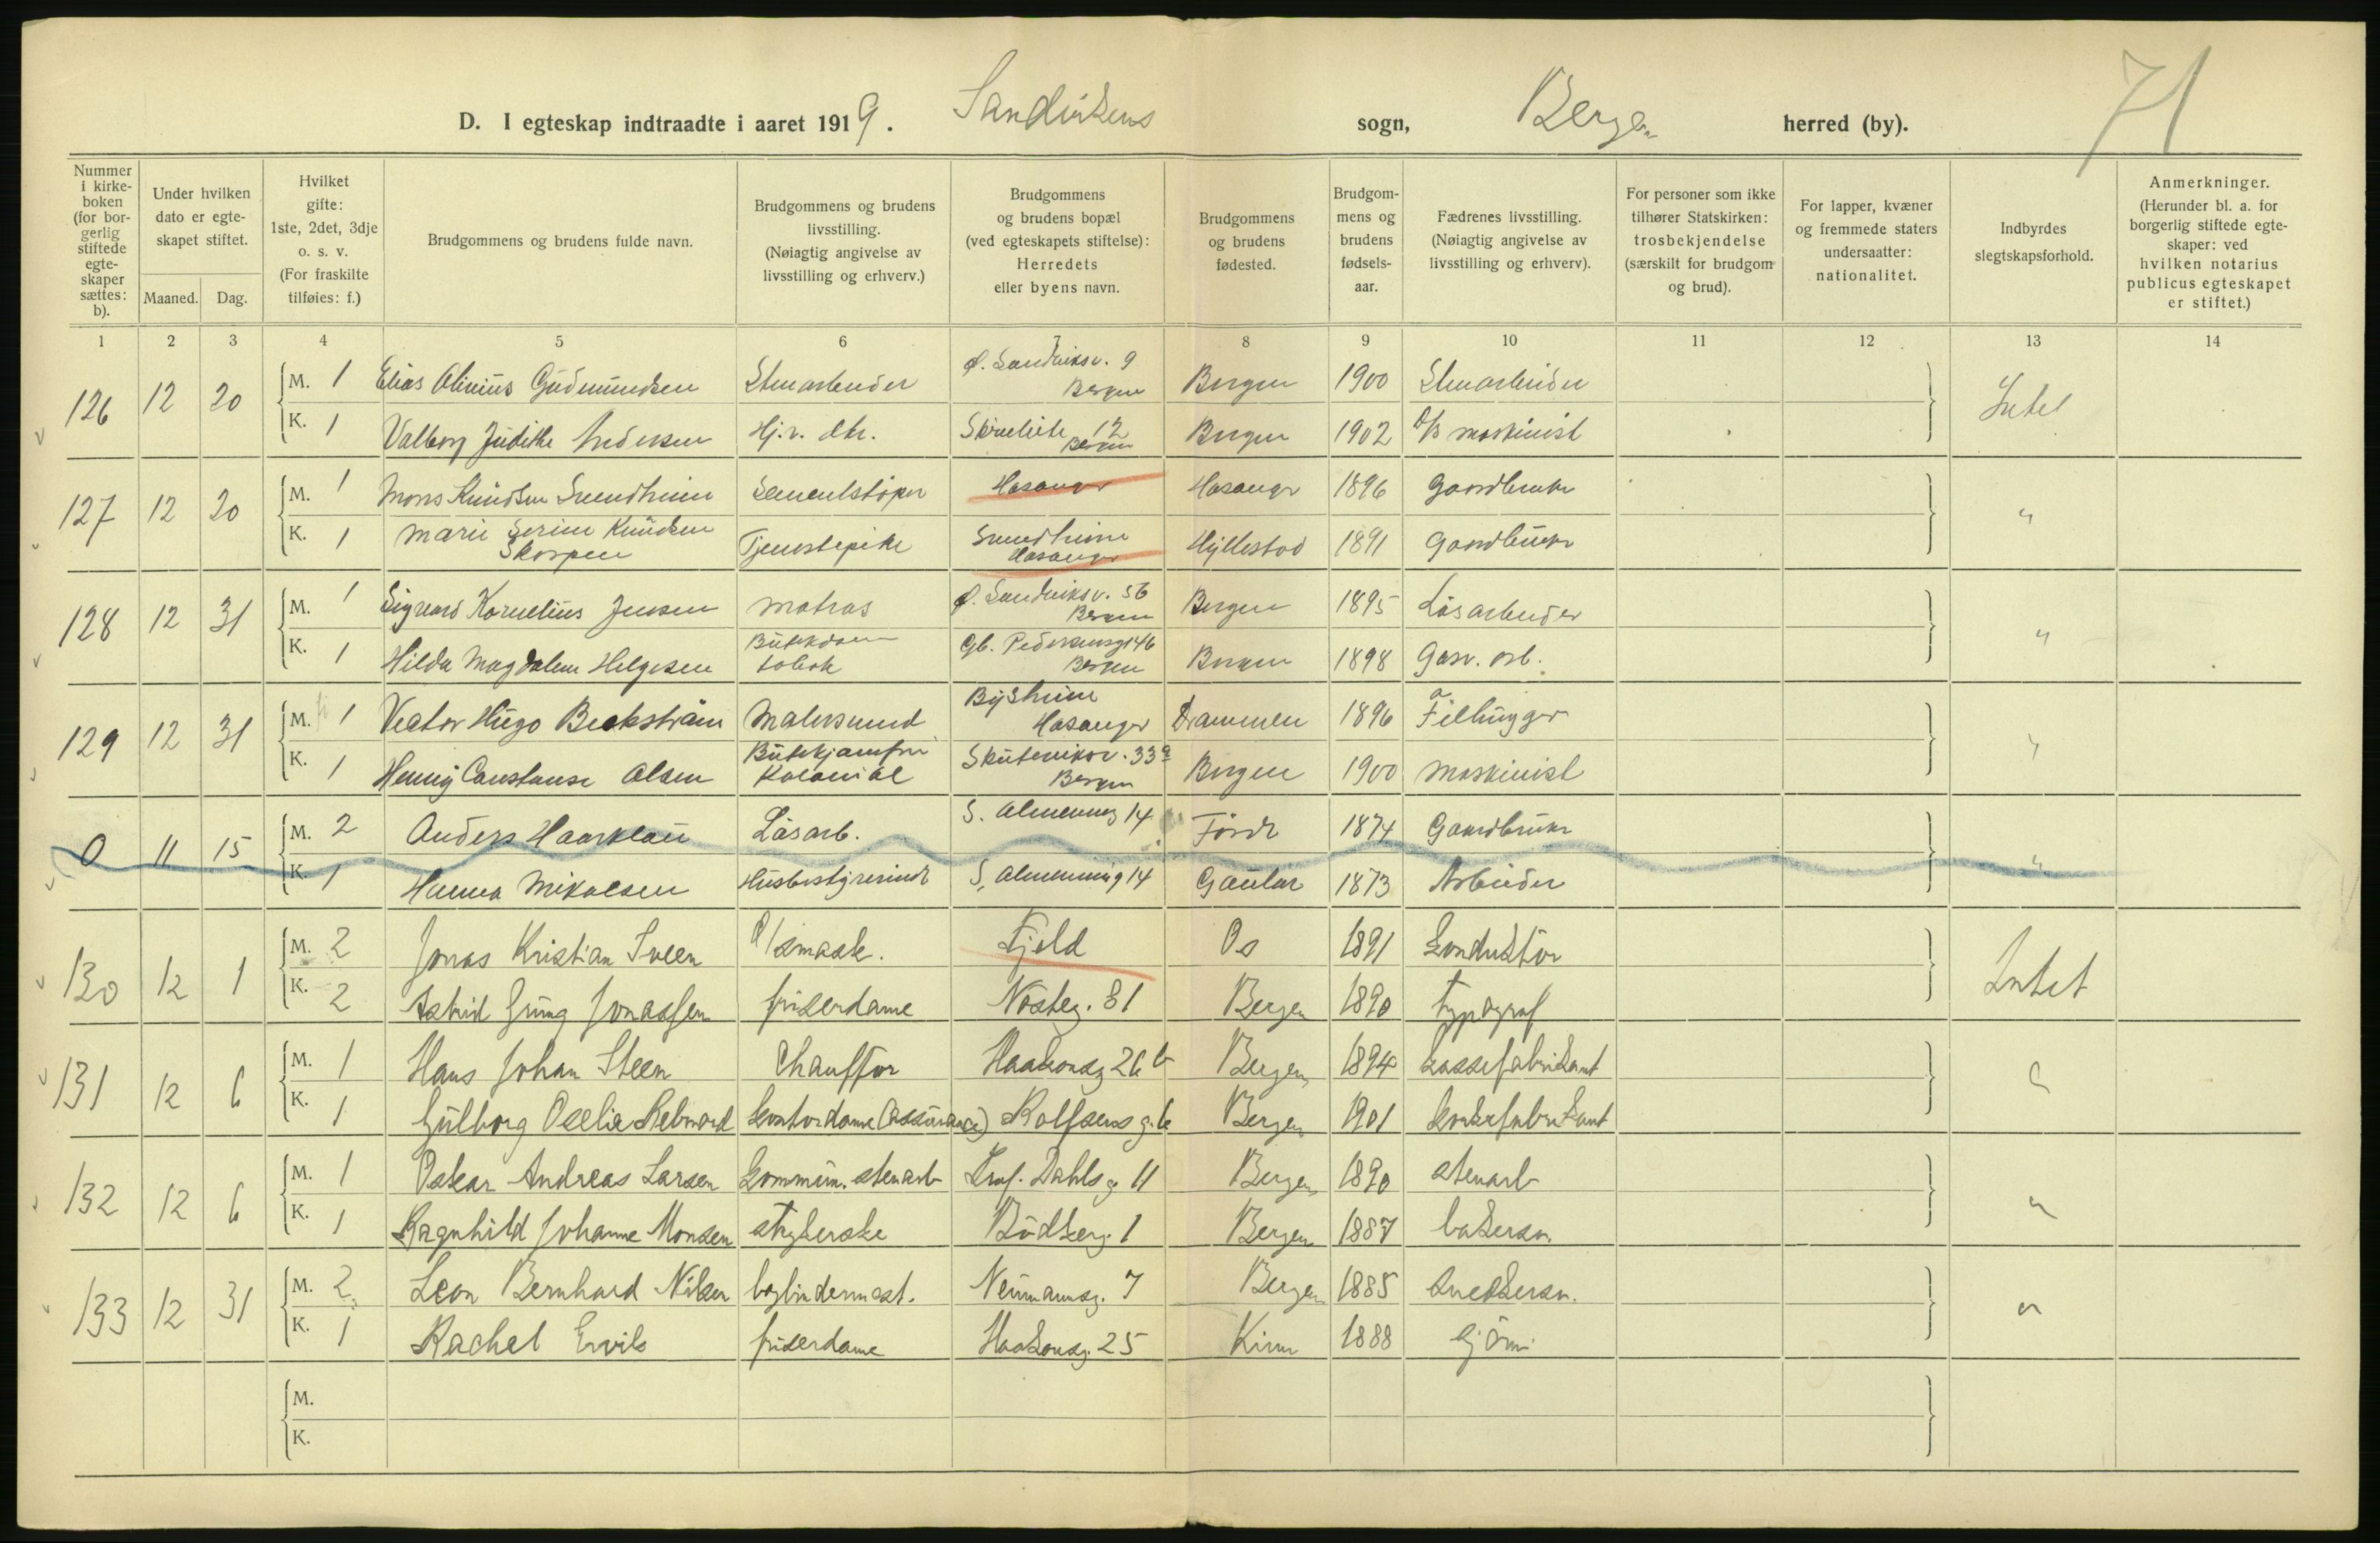 71
D. I egteskap indtraadte i aaret 1919. Sandvikens sogn, Bergen herred (by).
Nummer i kirkeboken (for borgerlig stiftede egteskaper sættes: b).
Under hvilken dato er egteskapet stiftet.
Maaned. Dag.
Hvilket gifte: 1ste, 2det, 3dje o. s. v. (For fraskilte tilføies: f.)
Brudgommens og brudens fulde navn.
Brudgommens og brudens livsstilling. (Nøiagtig angivelse av livsstilling og erhverv.)
Brudgommens og brudens bopæl (ved egteskapets stiftelse): Herredets eller byens navn.
Brudgommens og brudens fødested.
Brudgommens og brudens fødselsaar.
Fædrenes livsstilling. (Nøiagtig angivelse av livsstilling og erhverv).
For personer som ikke tilhører Statskirken: trosbekjendelse (særskilt for brudgom og brud).
For lapper, kvæner og fremmede staters undersaatter: nationalitet.
Indbyrdes slegtskapsforhold.
Anmerkninger. (Herunder bl. a. for borgerlig stiftede egteskaper: ved hvilken notarius publicus egteskapet er stiftet.)
1 2 3 4 5 6 7 8 9 10 11 12 13 14
126 12 20 M. 1 Elias Olinius Gudmundsen Stenarbeider Ø. Sandviksv. 9 Bergen Bergen 1900 Stenarbeider Intet
K. 1 Valborg Judithe Andersen Hj.v. dtr. Skivebakken 12 Bergen Bergen 1902 D/S maskinist
127 12 20 M. 1 Mons Knudsen Sundheim Sementstøper Hosanger Hosanger 1896 Gaardbruker "
K. 1 Marie Serine Knudsen Skorpen Tjenestepike Sundheim Hosanger Hyllestad 1891 Gaardbruker
128 12 31 M. 1 Sigvard Kornelius Jensen Matros Ø. Sandviksv. 56 Bergen Bergen 1895 Løsarbeider "
K. 1 Hilda Magdalene Helgesen Butikdame tobak Gb. Pedersensg 146 Bergen Bergen 1898 Gasv. arb.
129 12 31 M. 1 Victor Hugo Beckstrøm Malersvend Byshein Hosanger Drammen 1896 Filhugger "
K. 1 Henny Constanse Olsen Butikjomfru Kolonial Skuteviksv. 33a Bergen Bergen 1900 Maskinist
0 11 15 M. 2 Anders Haarklau Løsarb. S. Almenning 14 Førde 1874 Gaardbruker "
K. 1 Hanna Mikalsen Husbestyrerinde S. Almenning 14 Gaular 1873 Arbeider
130 12 1 M. 2 Jonas Kristian Sveen D/Smask. Fjeld Os 1891 Konduktør Intet
K. 2 Astrid Jung Jonassen friserdame Nøsteg. 81 Bergen 1890 typograf
131 12 6 M. 1 Hans Johan Steen Chauffør Haakonsg 26 b Bergen 1894 kassefabrikant "
K. 1 Gulborg Oselie Rebnord Kontordame (Assurance) Rolfsens g. 6 Bergen 1901 Korkefabrikant
132 12 6 M. 1 Oskar Andreas Larsen Kommun. stenarb Prof. Dahls g. 11 Bergen 1890 stenarb "
K. 1 Ragnhild Johanne Monsen strykerske Bødkerg. 1 Bergen 1887 bakersv.
133 12 31 M. 2 Leon Bernhard Nilsen bogbindermest. Neumannsg. 7 Bergen 1885 snekkersv. "
K. 1 Rachel Ervik friserdame Haakonsg. 25 Kinn 1888 Gjøm.
M.
K.